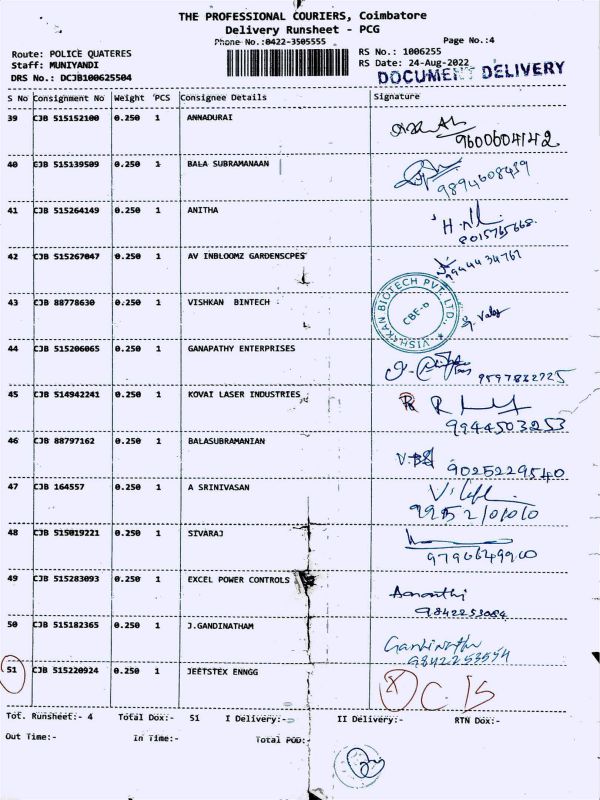 THE PROFESSIONAL COURIERS, Coimbatore
Delivery Runsheet - PCG
Phone No.:0422-3505555
Page No.:4
Route: POLICE QUATERES
RS No.: 1006255
Staff: MUNIYANDI
RS Date: 24-Aug-2022
DRS No.: DCJB100625504
DOCUMENT DELIVERY
S No Consignment No Weight 'PCS Consignee Details Signature
39 CJB 515152100 0.250 1 ANNADURAI
9600604142
40 CJB 515139509 0.250 1 BALA SUBRAMANAAN
9894608439
41 CJB 515264149 0.250 1 ANITHA
8015765668
42 CJB 515267047 0.250 1 AV INBLOOMZ GARDENSCPES
9944434767
43 CJB 88778630 0.250 1 VISHKAN BINTECH
VISHAKAN BIOTECH PVT. LTD.,
CBE-6
44 CJB 515206065 0.250 1 GANAPATHY ENTERPRISES
9597832725
45 CJB 514942241 0.250 1 KOVAI LASER INDUSTRIES
9944503253
46 CJB 88797162 0.250 1 BALASUBRAMANIAN
9025229540
47 CJB 164557 0.250 1 A SRINIVASAN
9952101010
48 CJB 515019221 0.250 1 SIVARAJ
49 CJB 515283093 0.250 1 EXCEL POWER CONTROLS
9842253084
50 CJB 515182365 0.250 1 J.GANDINATHAM
Gandinathan
9842253554
51 CJB 515220924 0.250 1 JEETSTEX ENNGG
Tot. Runsheet:- 4 Total Dox:- 51 I Delivery:- II Delivery:- RTN Dox:-
Out Time:- In Time:- Total POD:-